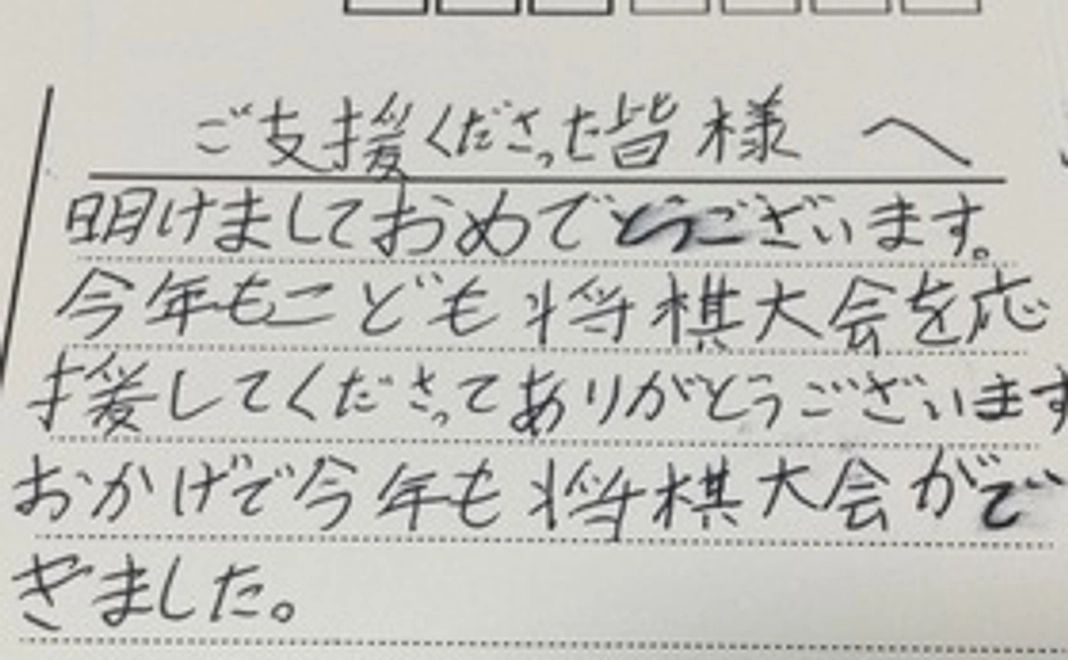 ご支援くださった皆様へ
明けましておめでとうございます。
今年もこども将棋大会を応
援してくださってありがとうございます
おかげで今年も将棋大会がで
きました。